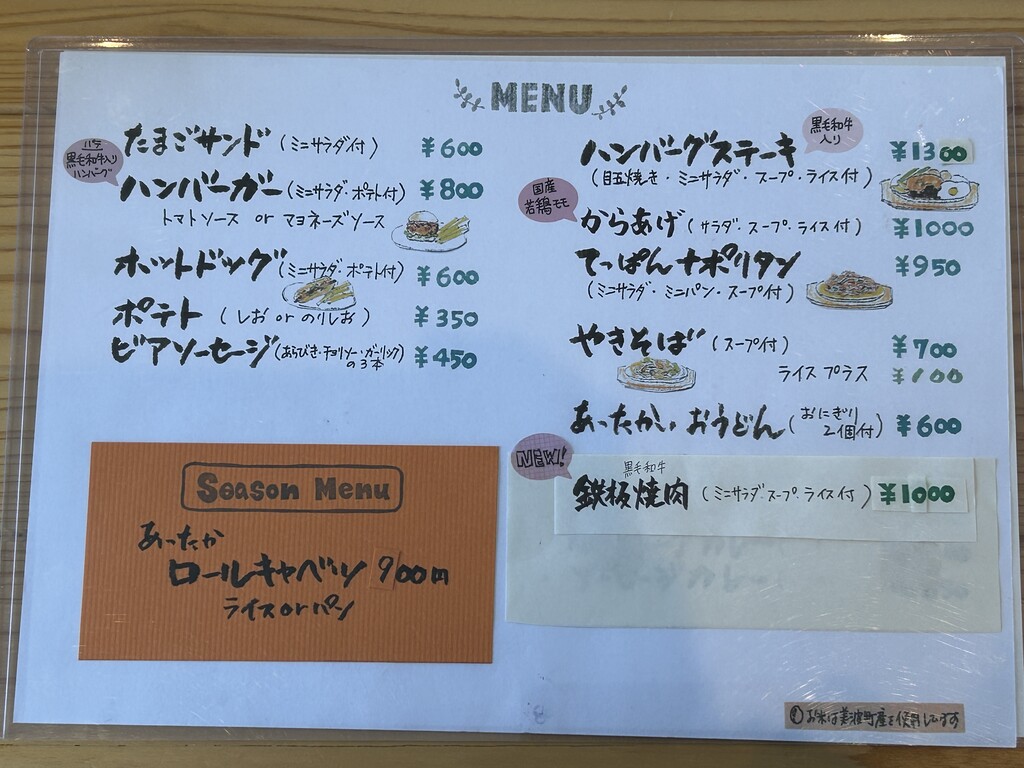 MENU
たまごサンド (ミニサラダ付) ¥600
パテ
黒毛和牛入り
ハンバーグ
ハンバーガー (ミニサラダ・ポテト付) ¥800
トマトソース or マヨネーズソース
ホットドッグ (ミニサラダ・ポテト付) ¥600
ポテト (しお or のりしお) ¥350
ビアソーセージ (あらびき・チョリソー・ガーリック の3本) ¥450
Season Menu
あったか
ロールキャベツ 900円
ライス or パン
黒毛和牛
入り
ハンバーグステーキ ¥1300
(目玉焼き・ミニサラダ・スープ・ライス付)
国産
若鶏モモ
からあげ (サラダ・スープ・ライス付) ¥1000
てっぱんナポリタン ¥950
(ミニサラダ・ミニパン・スープ付)
やきそば (スープ付) ¥700
ライス プラス ¥100
あったかいおうどん (おにぎり 2個付) ¥600
NEW!
黒毛和牛
鉄板焼肉 (ミニサラダ・スープ・ライス付) ¥1000
お米は美波町産を使用しています